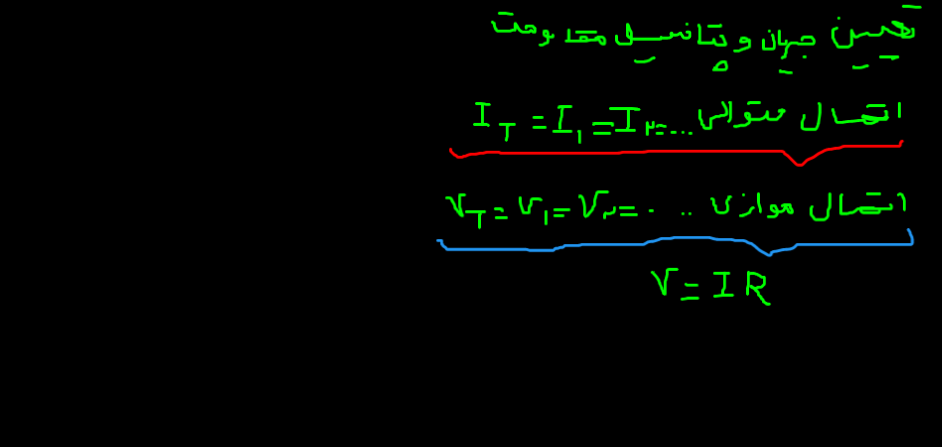 تعیین جریان و پتانسیل مقاومت
اتصال متوالی I_T = I_۱ = I_۲ = ...
اتصال موازی V_T = V_۱ = V_۲ = ...
V = IR